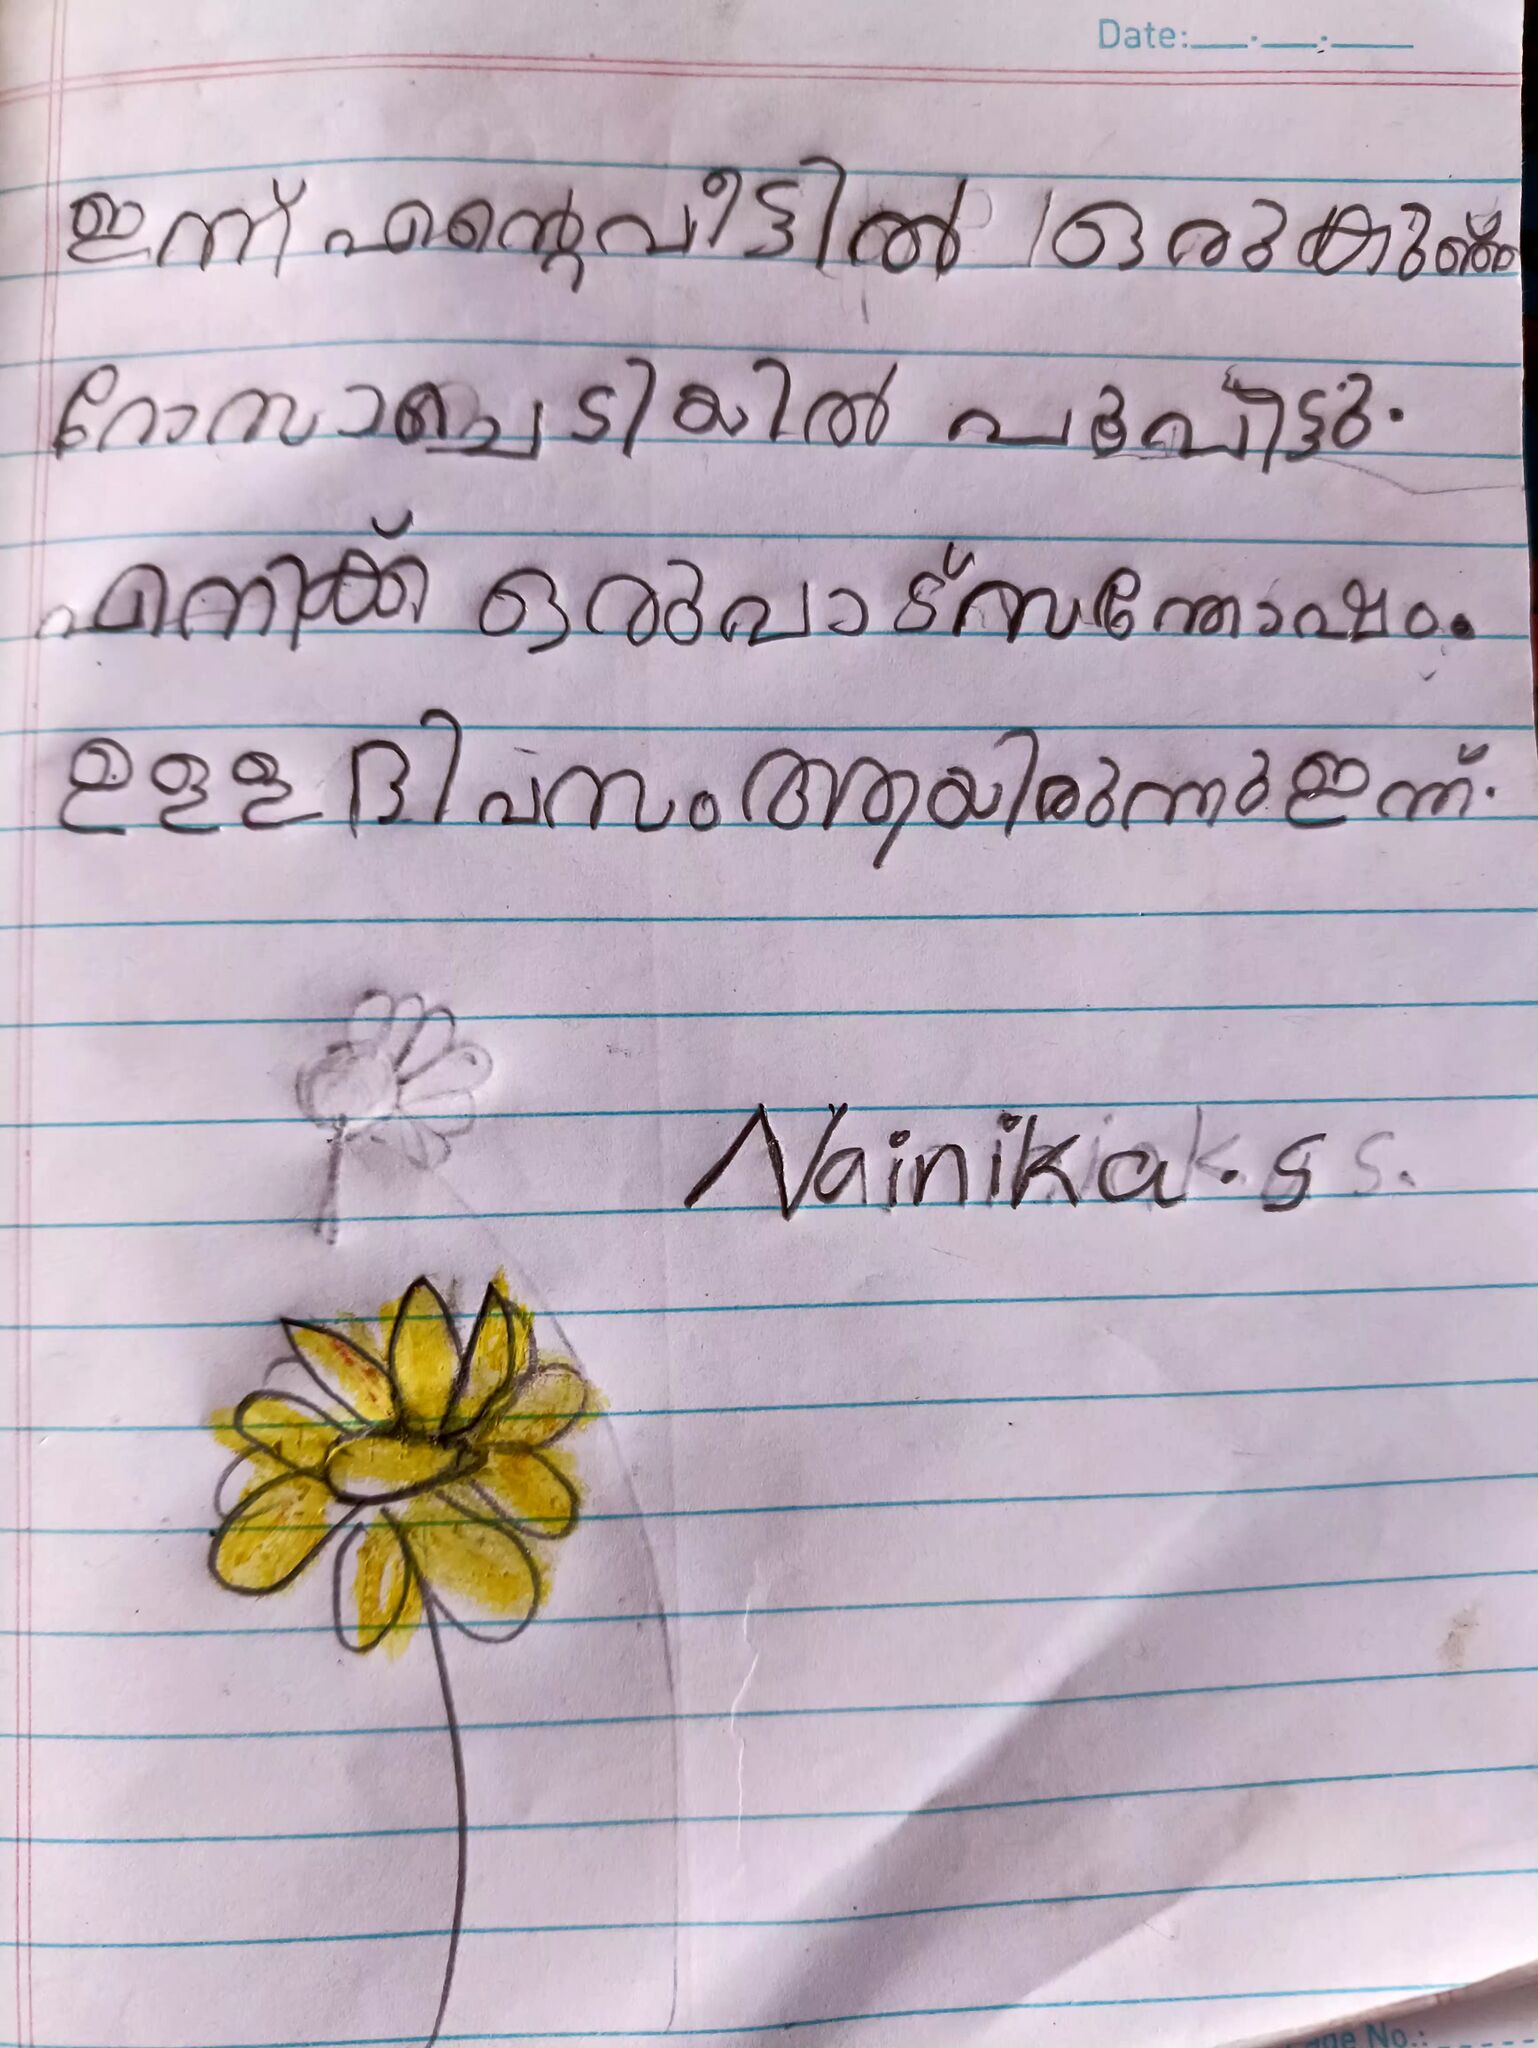 Date:
ഇന്ന് എന്റെവീട്ടിൽ ഒരുകുഞ്ഞ
റോസാച്ചെടിയിൽ പൂവിട്ടു.
എനിക്ക് ഒരുപാട് സന്തോഷം.
ഉള്ള ദിവസം ആയിരുന്നു ഇന്ന്.
Nainika. S S.
age No.: